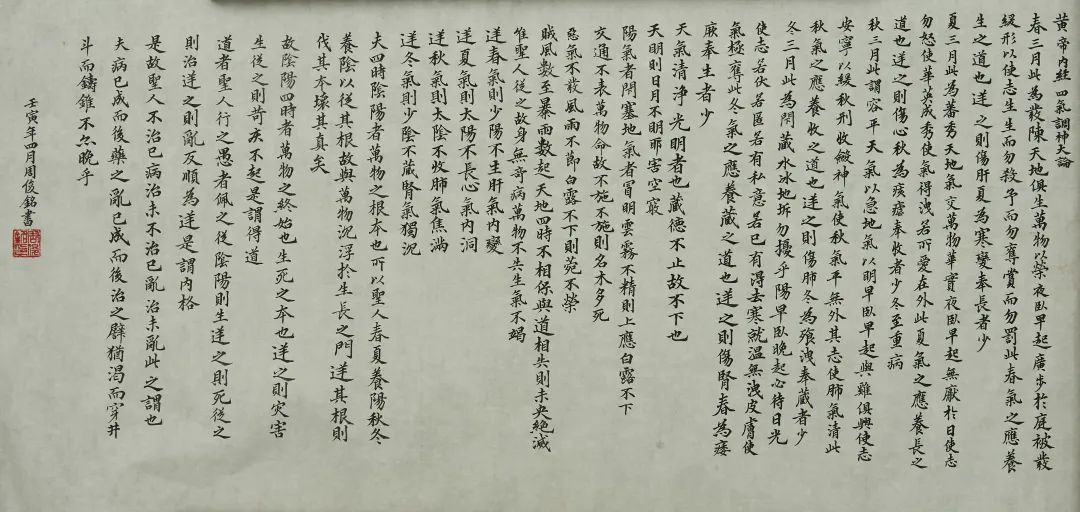 黃帝內經四氣調神大論
春三月此為發陳天地俱生萬物以榮夜臥早起廣步於庭被髮
緩形以使志生生而勿殺予而勿奪賞而勿罰此春氣之應養
生之道也逆之則傷肝夏為寒變奉長者少
夏三月此為蕃秀天地氣交萬物華實夜臥早起無厭於日使志
勿怒使華英成秀使氣得洩若所愛在外此夏氣之應養長之
道也逆之則傷心秋為痎瘧奉收者少冬至重病
秋三月此謂容平天氣以急地氣以明早臥早起與雞俱興使志
安寧以緩秋刑收斂神氣使秋氣平無外其志使肺氣清此
秋氣之應養收之道也逆之則傷肺冬為飧洩奉藏者少
冬三月此為閉藏水冰地坼勿擾乎陽早臥晚起必待日光
使志若伏若匿若有私意若已有得去寒就溫無洩皮膚使
氣極奪此冬氣之應養藏之道也逆之則傷腎春為痿
厥奉生者少
天氣清淨光明者也藏德不止故不下也
天明則日月不明邪害空竅
陽氣者閉塞地氣者冒明雲霧不精則上應白露不下
交通不表萬物命故不施不施則名木多死
惡氣不發風雨不節白露不下則菀不榮
賊風數至暴雨數起天地四時不相保與道相失則未央絕滅
惟聖人從之故身無奇病萬物不失生氣不竭
逆春氣則少陽不生肝氣內變
逆夏氣則太陽不長心氣內洞
逆秋氣則太陰不收肺氣焦滿
逆冬氣則少陰不藏腎氣獨沉
夫四時陰陽者萬物之根本也所以聖人春夏養陽秋冬
養陰以從其根故與萬物沉浮於生長之門逆其根則
伐其本壞其真矣
故陰陽四時者萬物之終始也生死之本也逆之則災害
生從之則苛疾不起是謂得道
道者聖人行之愚者佩之從陰陽則生逆之則死從之
則治逆之則亂反順為逆是謂內格
是故聖人不治已病治未不治已亂治未亂此之謂也
夫病已成而後藥之亂已成而後治之辟猶渴而穿井
斗而鑄錐不亦晚乎
壬寅年四月周俊銘書